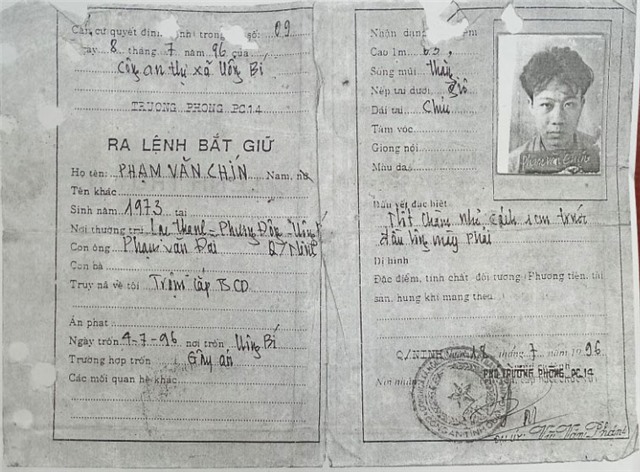 Căn cứ quyết định số: 09
Ngày 8 tháng 7 năm 96 của
Công an thị xã Uông Bí
TRƯỞNG PHÒNG PC14
RA LỆNH BẮT GIỮ
Họ tên: PHẠM VĂN CHÍN Nam, nữ
Tên khác
Sinh năm 1973 tại
Nơi thường trú Lạc Thanh - Phương Đông - Uông Bí
Con ông Phạm Văn Đại Q/Ninh
Con bà
Truy nã về tội Trộm cắp TSCD
Án phạt
Ngày trốn 4-7-96 nơi trốn Uông Bí
Trường hợp trốn Gây án
Các mối quan hệ khác
Nhận dạng
Cao 1m 63
Sống mũi thẳng
Nếp tai dưới
Dái tai Chúc
Tầm vóc
Giọng nói
Màu da
Dấu vết đặc biệt
Nốt chấm nhỏ cách 1cm trước
đầu lông mày phải
Dị hình
Đặc điểm, tính chất đối tượng (Phương tiện, tài
sản, hung khí mang theo)
Q/NINH 18 tháng 7 năm 1996
PHÓ TRƯỞNG PHÒNG PC14